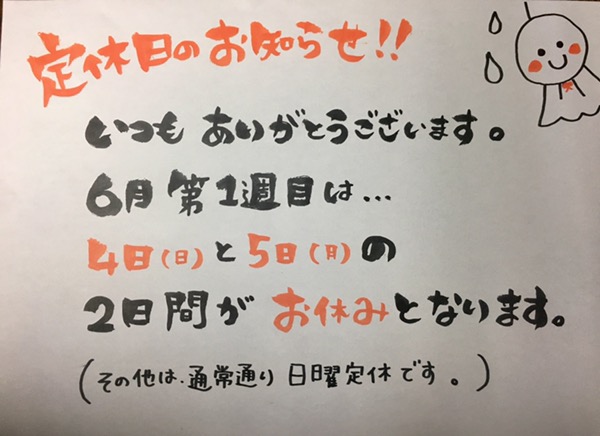 定休日のお知らせ!!
いつもありがとうございます。
6月第1週目は...
4日(日)と5日(月)の
2日間がお休みとなります。
(その他は、通常通り日曜定休です。)